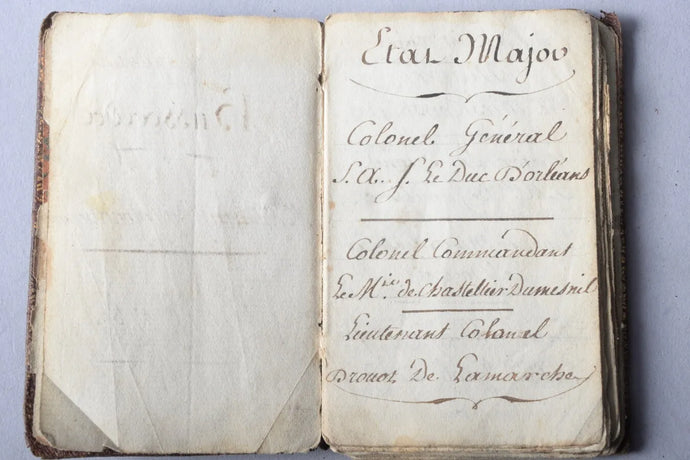 Etat Major
Colonel Général
S. A. S. Le Duc D'orléans
Colonel Commandant
Le M.is de Chastellier Dumesnil
Lieutenant Colonel
Drouot De Lamarche